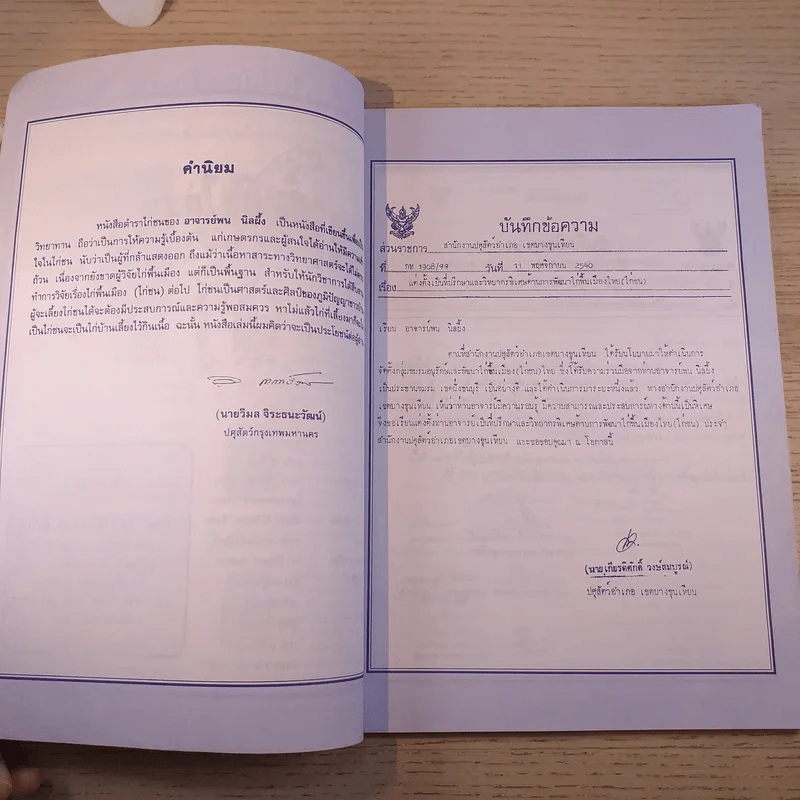 คำนิยม
หนังสือตำราไก่ชนของ อาจารย์พน นิลผึ้ง เป็นหนังสือที่เขียนขึ้นเพื่อเป็น
วิทยาทาน ถือว่าเป็นการให้ความรู้เบื้องต้น แก่เกษตรกรและผู้สนใจได้อ่านให้มีความ
ใจในไก่ชน นับว่าเป็นผู้ที่กล้าแสดงออก ถึงแม้ว่าเนื้อหาสาระทางวิทยาศาสตร์จะได้ไม่
ถ้วน เนื่องจากยังขาดผู้วิจัยไก่พื้นเมือง แต่ก็เป็นพื้นฐาน สำหรับให้นักวิชาการได้
ทำการวิจัยเรื่องไก่พื้นเมือง (ไก่ชน) ต่อไป ไก่ชนเป็นศาสตร์และศิลป์ของภูมิปัญญา
ผู้จะเลี้ยงไก่ชนได้จะต้องมีประสบการณ์และความรู้พอสมควร หาไม่แล้วไก่ที่เลี้ยงมาก็
เป็นไก่ชนจะเป็นไก่บ้านเลี้ยงไว้กินเนื้อ ฉะนั้น หนังสือเล่มนี้ผมคิดว่าจะเป็นประโยชน์ต่อ
(นายวิมล จิระธนะวัฒน์)
ปศุสัตว์กรุงเทพมหานคร
บันทึกข้อความ
ส่วนราชการ สำนักงานปศุสัตว์อำเภอ เขตบางขุนเทียน
ที่ กท 1308/99 วันที่ 11 พฤศจิกายน 2540
เรื่อง แต่งตั้งเป็นที่ปรึกษาและวิทยากรพิเศษด้านการพัฒนาไก่พื้นเมืองไทย(ไก่ชน)
เรียน อาจารย์พน นิลผึ้ง
ตามที่สำนักงานปศุสัตว์อำเภอเขตบางขุนเทียน ได้รับนโยบายมาให้ดำเนินการ
จัดตั้งกลุ่มชมรมอนุรักษ์และพัฒนาไก่พื้นเมือง(ไก่ชน)ไทย ซึ่งได้รับความร่วมมือจากท่านอาจารย์พน นิลผึ้ง
เป็นประธานชมรม เขตฝั่งธนบุรี เป็นอย่างดี และได้ดำเนินการมาระยะหนึ่งแล้ว ทางสำนักงานปศุสัตว์อำเภอ
เขตบางขุนเทียน เห็นว่าท่านอาจารย์มีความรอบรู้ มีความสามารถและประสบการณ์ทางด้านนี้เป็นพิเศษ
จึงขอเรียนแต่งตั้งท่านอาจารย์เป็นที่ปรึกษาและวิทยากรพิเศษด้านการพัฒนาไก่พื้นเมืองไทย(ไก่ชน) ประจำ
สำนักงานปศุสัตว์อำเภอเขตบางขุนเทียน และขอขอบคุณมา ณ โอกาสนี้
(นายเกียรติศักดิ์ วงษ์สมบูรณ์)
ปศุสัตว์อำเภอ เขตบางขุนเทียน